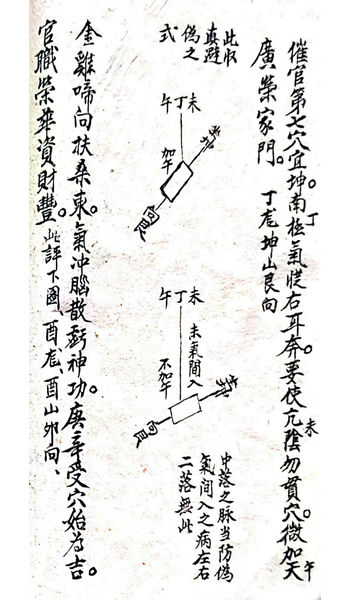 催官第七穴宜坤。南極氣從右耳奔。要使亢陰勿貫穴。微加天
丁
未
午
廣榮家門。丁龙坤山艮向
此收
真避
偽之
式
午丁未
坐坤
加午
向艮
午丁未
未氣間入
坐坤
不加午
向艮
中落之脉当防偽
氣間入之病左右
二落無此
金雞啼向扶桑東。氣冲腦散虧神功。庚辛受穴始為吉。
官職榮華資財豐。此評下圖、酉龙、酉山卯向、